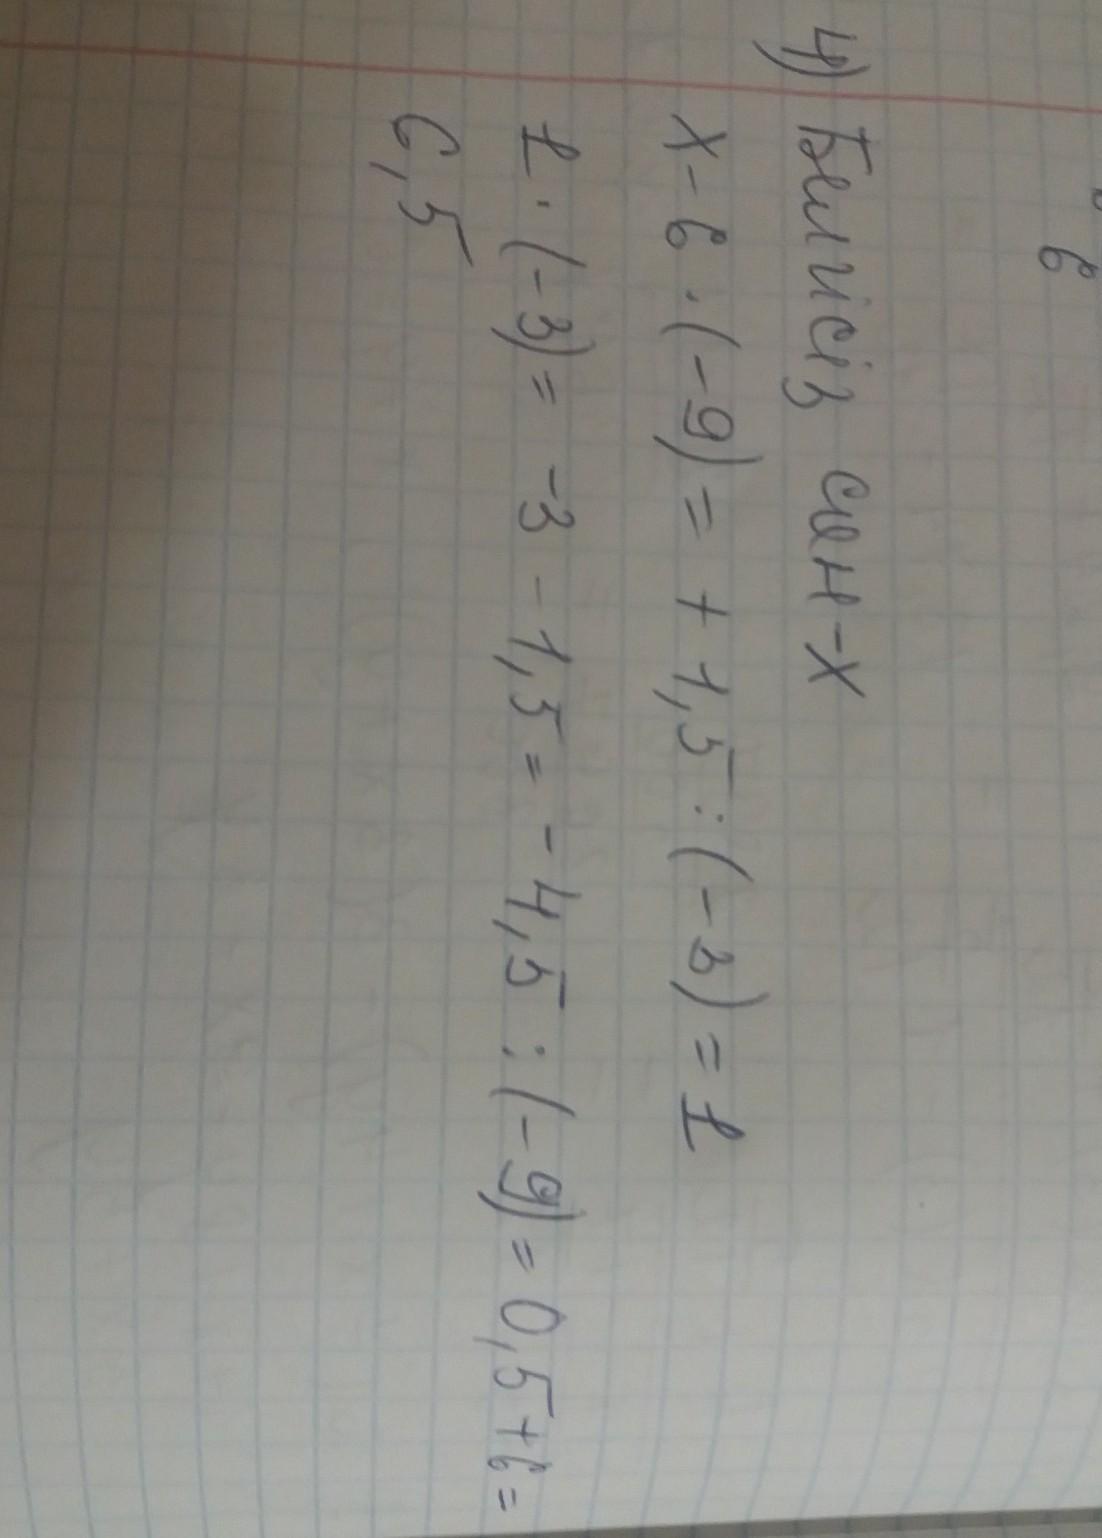 6
4) Белгісіз сан-х
х-6·(-9)= +1,5:(-3)=1
1·(-3)= -3-1,5=-4,5:(-9)=0,5+6=
6,5